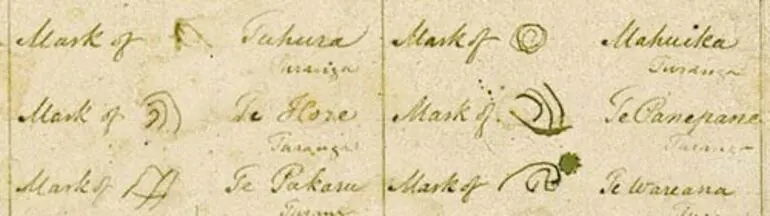 Mark of Tuhura
Turanga
Mark of Te Hore
Turanga
Mark of Te Pakaru
Mark of Mahuika
Turanga
Mark of Te Panepane
Turanga
Mark of Te Wareana